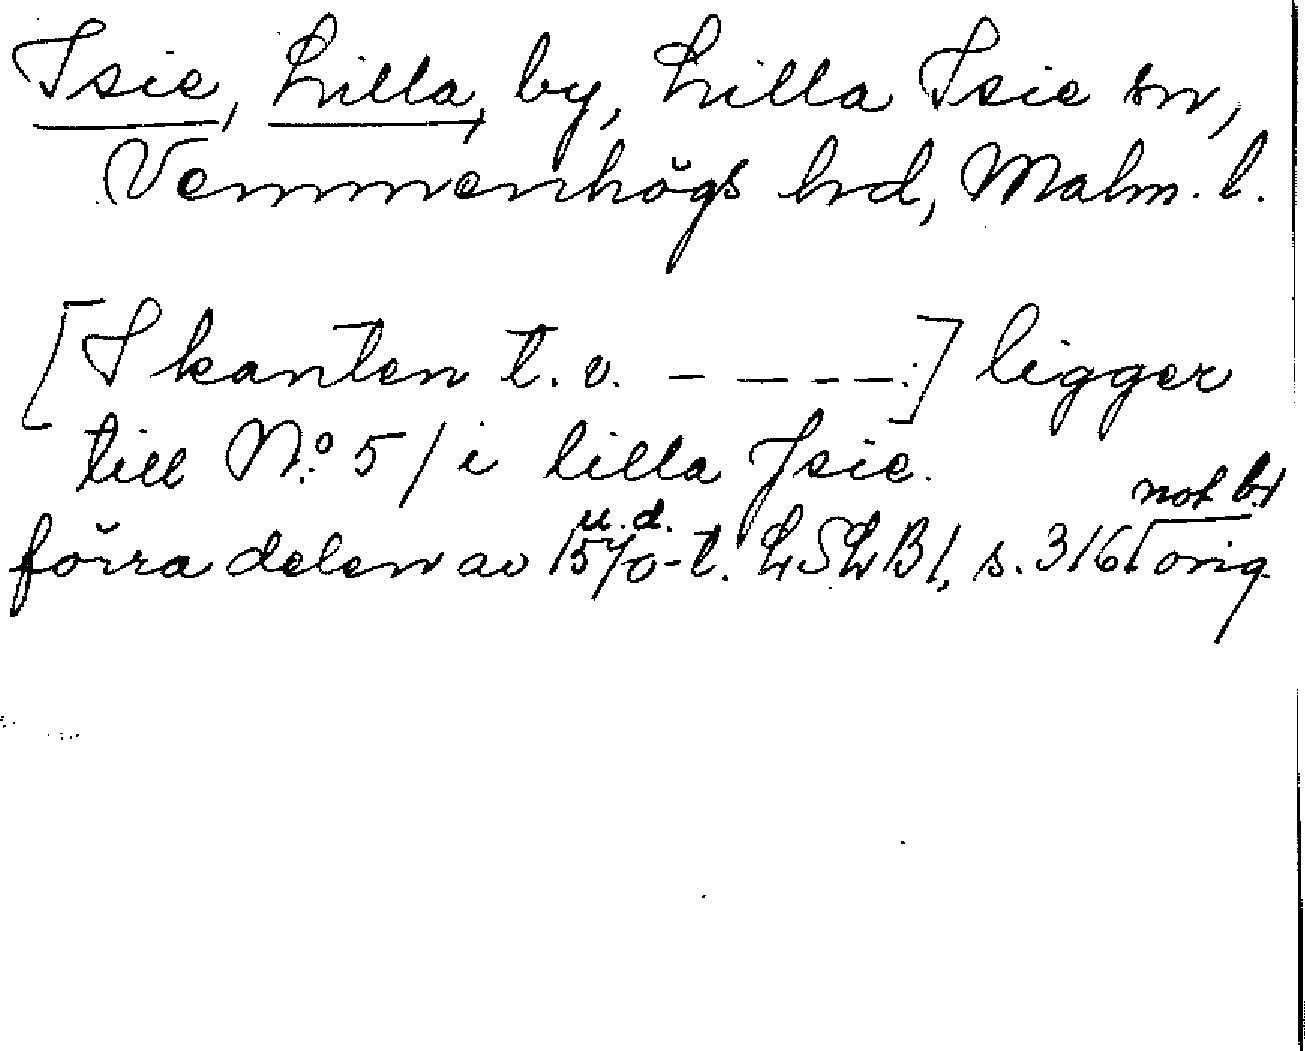 Isie, Lilla, by, Lilla Isie sn,
Vemmenhögs hrd, Malm. l.
[I kanten t. v. – — – —:] ligger
till N:o 5 / i lilla Jsie.
not b1
u. d.
förra delen av 1570-t. LSLB1, s. 316 orig.